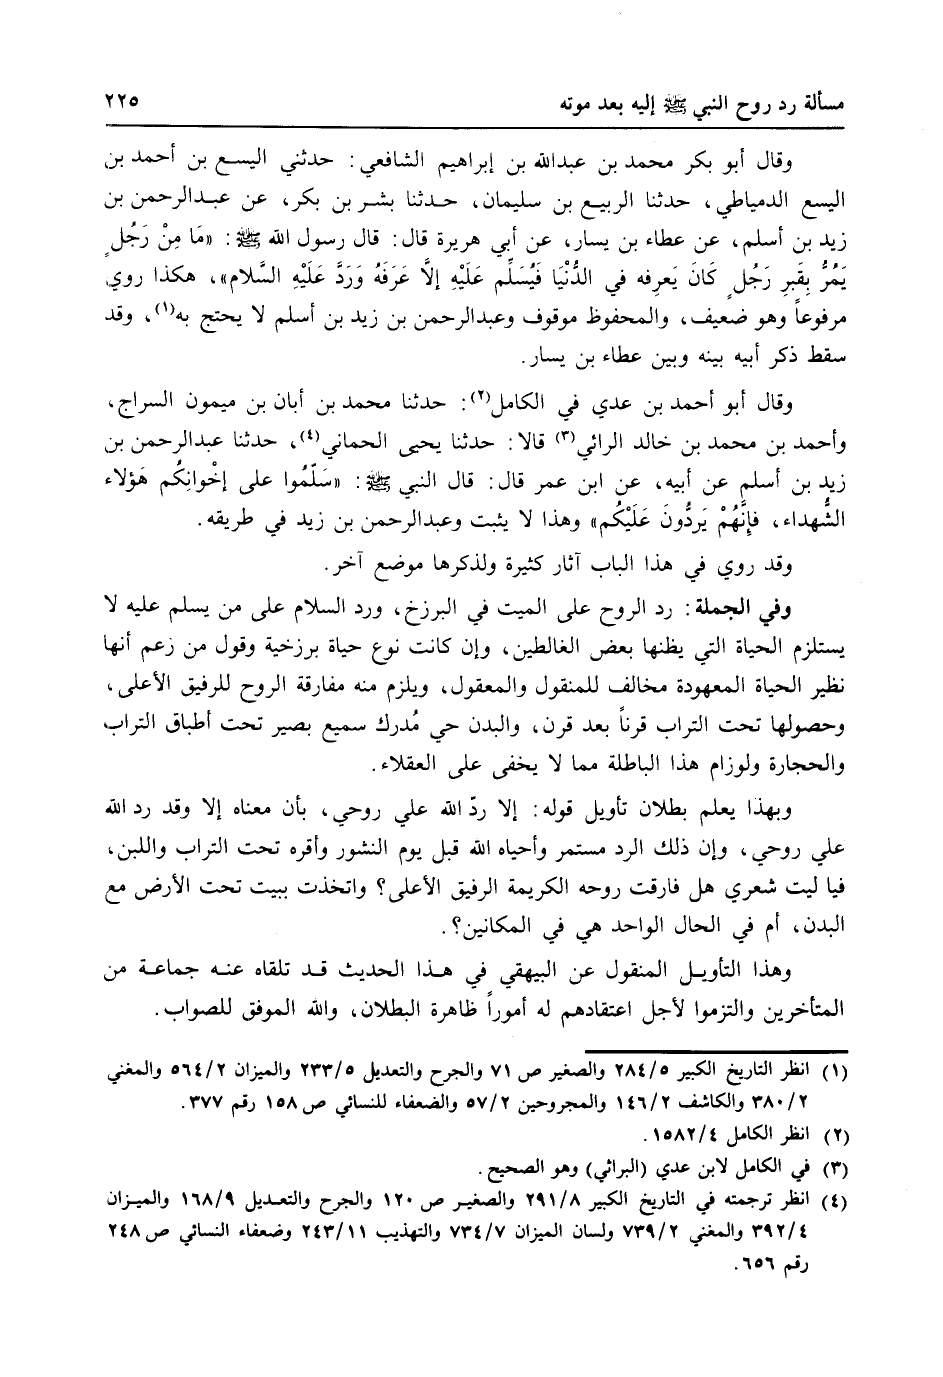 مسألة رد روح النبي ﷺ إليه بعد موته ٢٢٥
وقال أبو بكر محمد بن عبدالله بن إبراهيم الشافعي: حدثني اليسع بن أحمد بن
اليسع الدمياطي، حدثنا الربيع بن سليمان، حدثنا بشر بن بكر، عن عبدالرحمن بن
زيد بن أسلم، عن عطاء بن يسار، عن أبي هريرة قال: قال رسول الله ﷺ: «مَا مِنْ رَجُلٍ
يَمُرُّ بِقَبرِ رَجُلٍ كَانَ يَعرِفه في الدُّنْيَا فَيُسَلِّم عَلَيْهِ إلَّا عَرَفَهُ وَرَدَّ عَلَيْهِ السَّلام»، هكذا روي
مرفوعاً وهو ضعيف، والمحفوظ موقوف وعبدالرحمن بن زيد بن أسلم لا يحتج به(١)، وقد
سقط ذكر أبيه بينه وبين عطاء بن يسار.
وقال أبو أحمد بن عدي في الكامل(٢): حدثنا محمد بن أبان بن ميمون السراج،
وأحمد بن محمد بن خالد الرائي(٣) قالا: حدثنا يحيى الحماني(٤)، حدثنا عبدالرحمن بن
زيد بن أسلم عن أبيه، عن ابن عمر قال: قال النبي ﷺ: «سَلّمُوا على إخْوانِكُم هَؤلاء
الشُّهداء، فإنَّهُمْ يَردُّونَ عَلَيْكُم» وهذا لا يثبت وعبدالرحمن بن زيد في طريقه.
وقد روي في هذا الباب آثار كثيرة ولذكرها موضع آخر.
وفي الجملة: رد الروح على الميت في البرزخ، ورد السلام على من يسلم عليه لا
يستلزم الحياة التي يظنها بعض الغالطين، وإن كانت نوع حياة برزخية وقول من زعم أنها
نظير الحياة المعهودة مخالف للمنقول والمعقول، ويلزم منه مفارقة الروح للرفيق الأعلى،
وحصولها تحت التراب قرناً بعد قرن، والبدن حي مُدرك سميع بصير تحت أطباق التراب
والحجارة ولوزام هذا الباطلة مما لا يخفى على العقلاء.
وبهذا يعلم بطلان تأويل قوله: إلا ردّ الله علي روحي، بأن معناه إلا وقد رد الله
علي روحي، وإن ذلك الرد مستمر وأحياه الله قبل يوم النشور وأقره تحت التراب واللبن،
فيا ليت شعري هل فارقت روحه الكريمة الرفيق الأعلى؟ واتخذت ببيت تحت الأرض مع
البدن، أم في الحال الواحد هي في المكانين؟.
وهذا التأويل المنقول عن البيهقي في هذا الحديث قد تلقاه عنه جماعة من
المتأخرين والتزموا لأجل اعتقادهم له أموراً ظاهرة البطلان، والله الموفق للصواب.
(١) انظر التاريخ الكبير ٢٨٤/٥ والصغير ص ٧١ والجرح والتعديل ٢٣٣/٥ والميزان ٥٦٤/٢ والمغني
٣٨٠/٢ والكاشف ١٤٦/٢ والمجروحين ٥٧/٢ والضعفاء للنسائي ص ١٥٨ رقم ٣٧٧.
(٢) انظر الكامل ١٥٨٢/٤.
(٣) في الكامل لابن عدي (البراثي) وهو الصحيح.
(٤) انظر ترجمته في التاريخ الكبير ٢٩١/٨ والصغير ص ١٢٠ والجرح والتعديل ١٦٨/٩ والميزان
٣٩٢/٤ والمغني ٧٣٩/٢ ولسان الميزان ٧٣٤/٧ والتهذيب ٢٤٣/١١ وضعفاء النسائي ص ٢٤٨
رقم ٦٥٦.